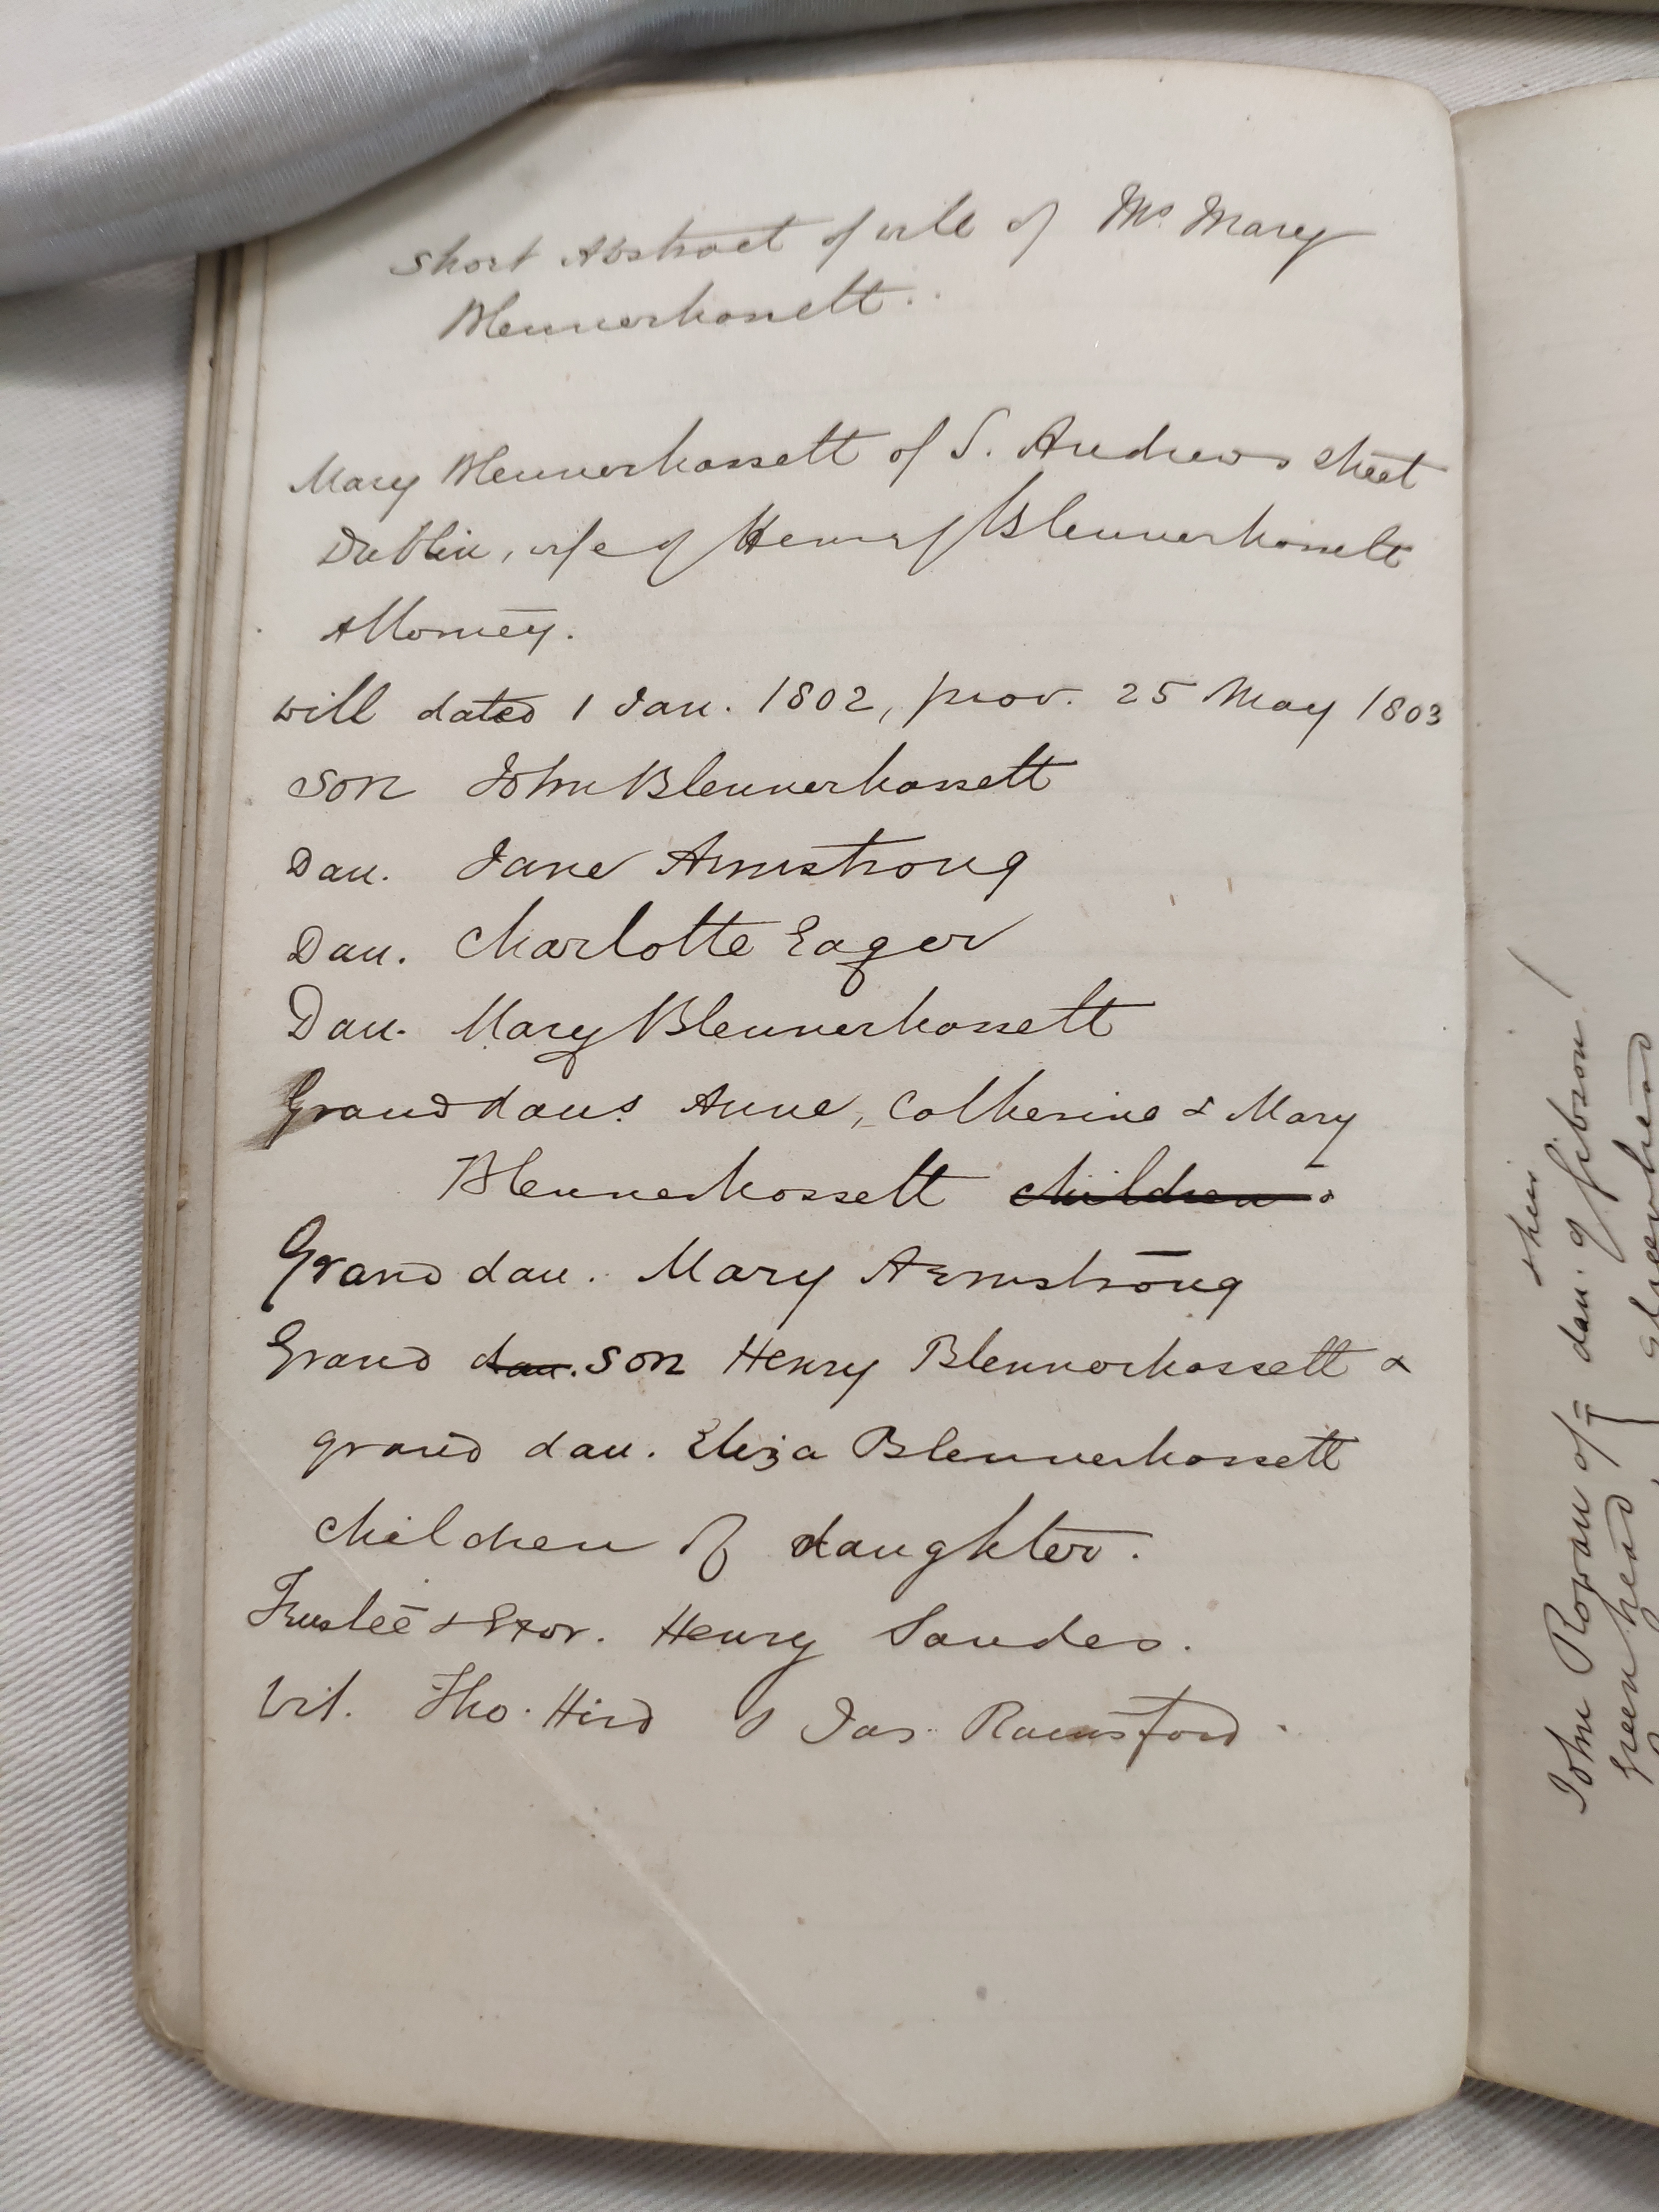 Short Abstract of will of Mrs Mary
Blennerhassett.
Mary Blennerhassett of S. Andrews Street
Dublin, wife of Henry Blennerhassett
Attorney.
will dated 1 Jan. 1802, prov. 25 May 1803
Son John Blennerhassett
Dau. Jane Armstrong
Dau. Charlotte Eager
Dau. Mary Blennerhassett
Grand daus. Anne, Catherine & Mary
Blennerhassett children
Grand dau. Mary Armstrong
Grand dau. son Henry Blennerhassett &
grand dau. Eliza Blennerhassett
children of daughter.
Trustee & Exor. Henry Sandes.
Wit. Tho. Hird & Jas. Rainsford.
their
John Rowan of dan. of Gibson
Greenhead